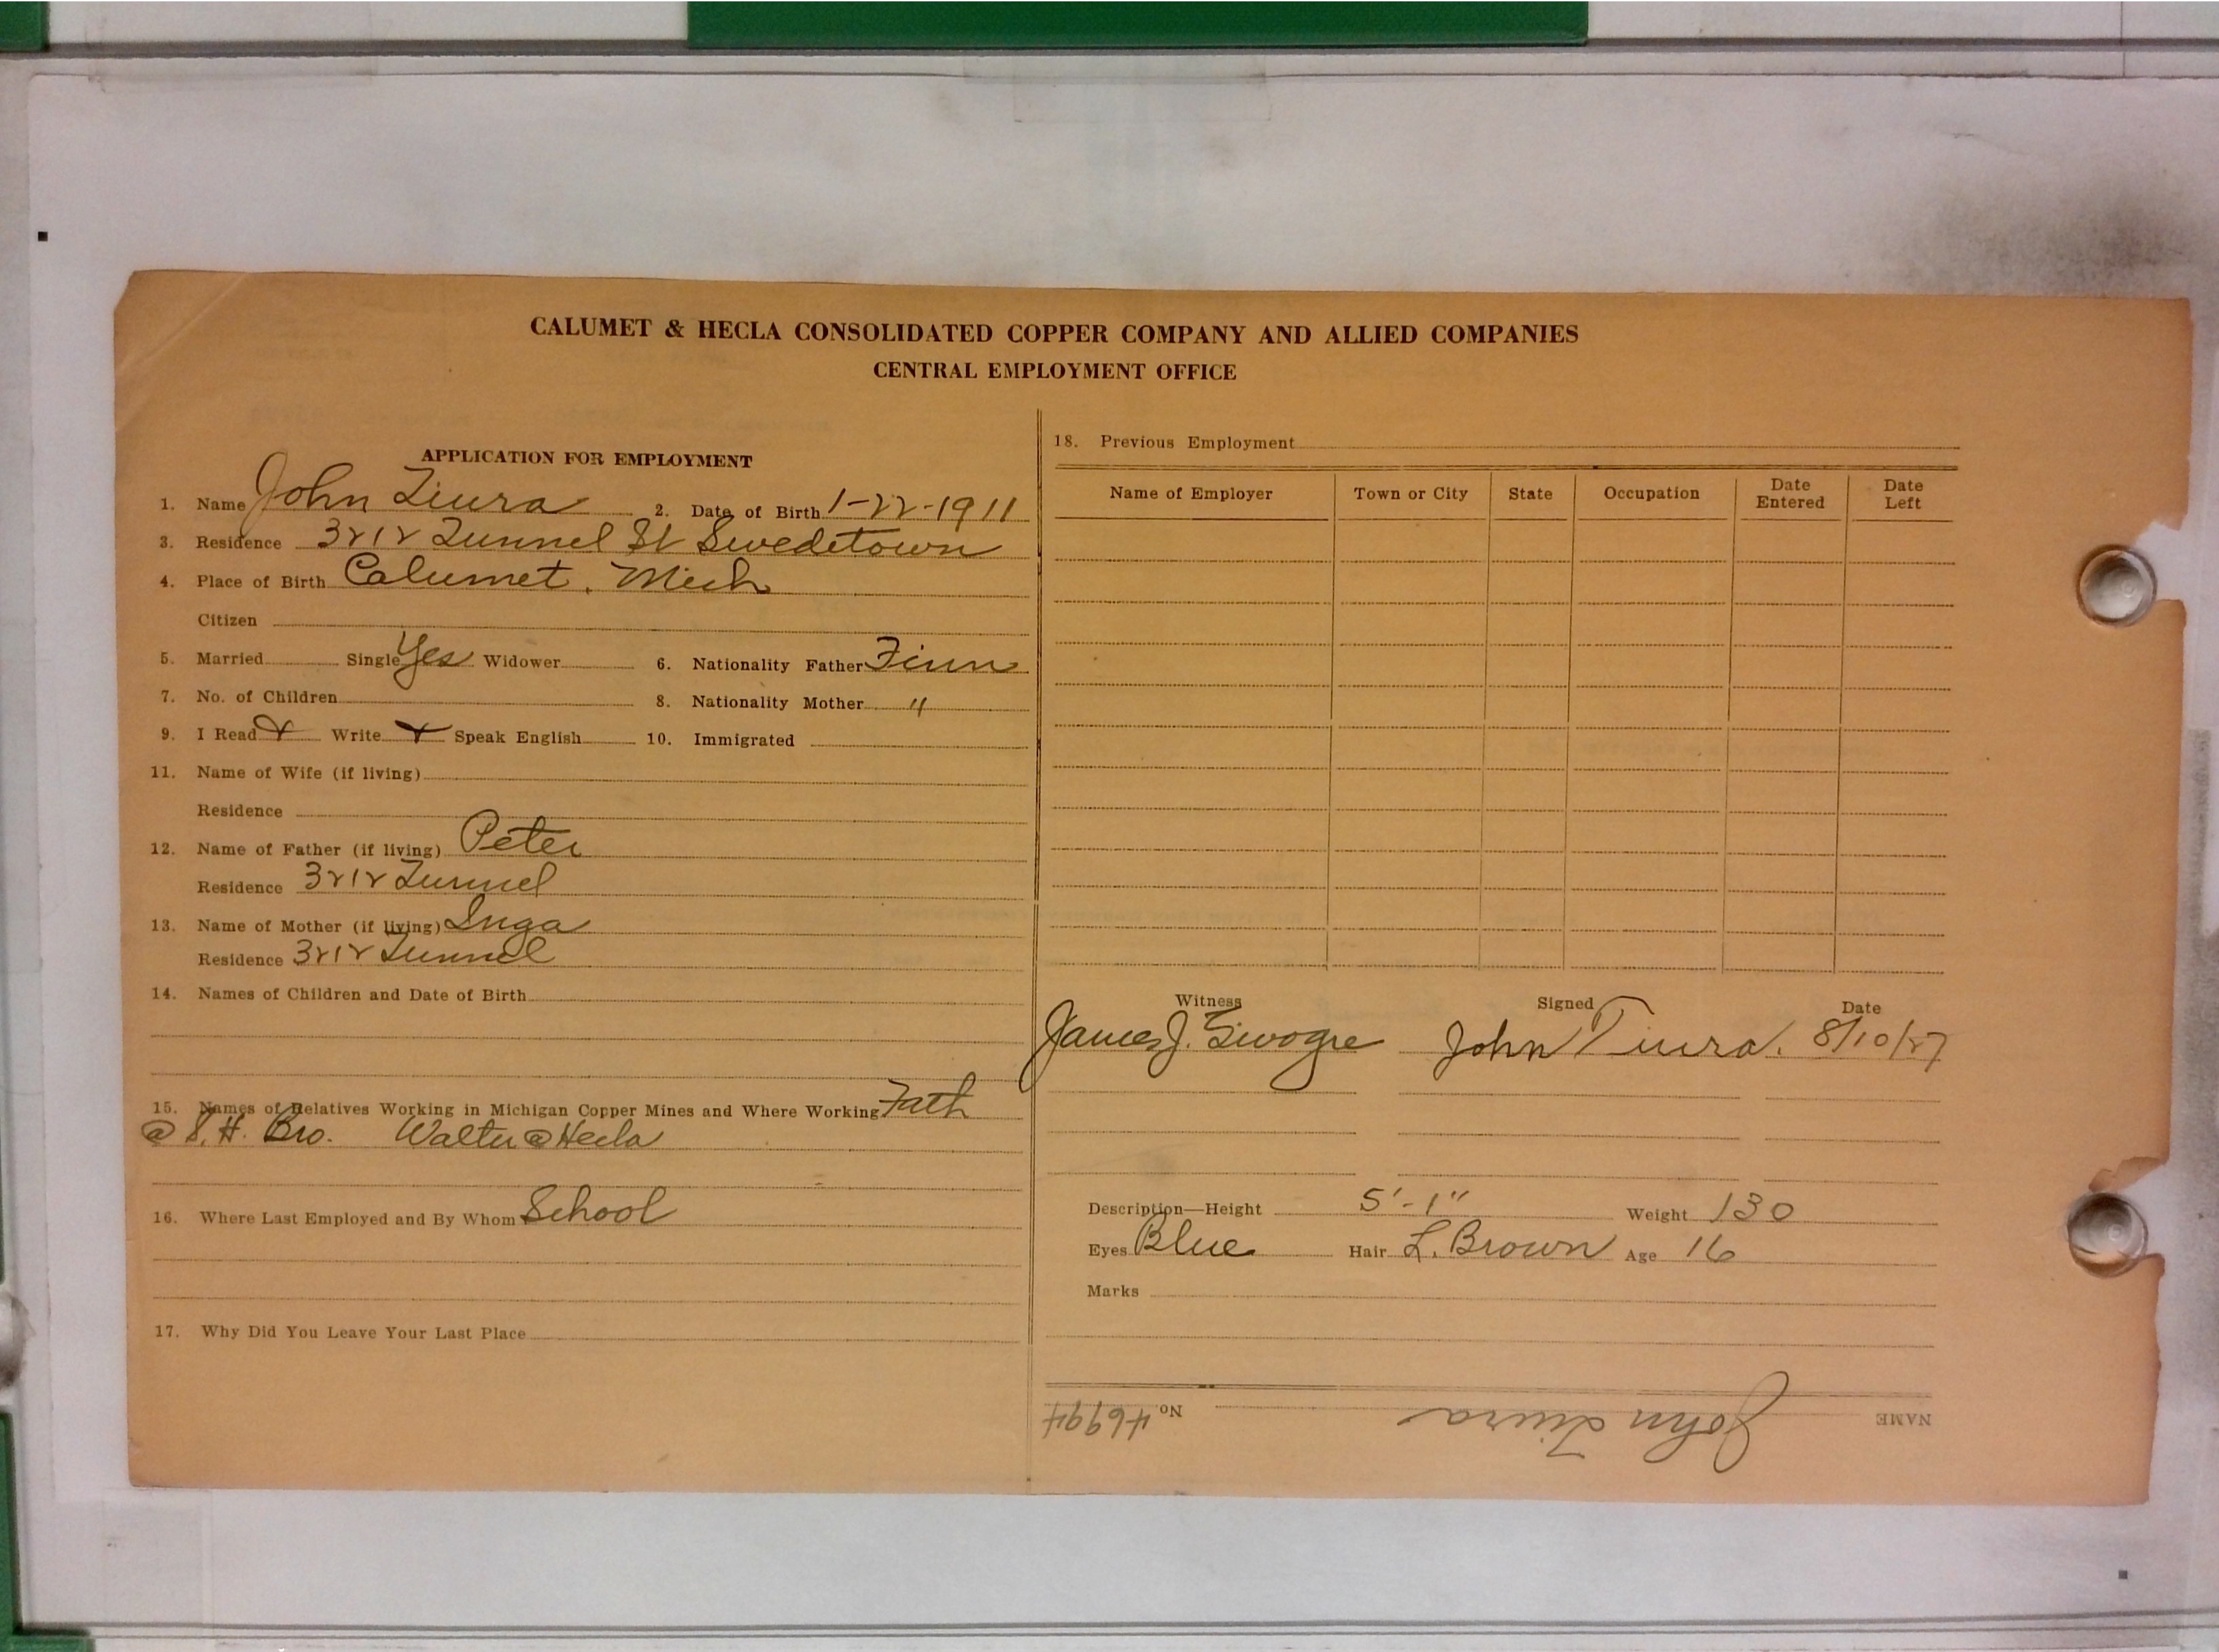 CALUMET & HECLA CONSOLIDATED COPPER COMPANY AND ALLIED COMPANIES
CENTRAL EMPLOYMENT OFFICE
APPLICATION FOR EMPLOYMENT
1. Name John Tiura 2. Date of Birth 1-22-1911
3. Residence 3212 Tunnel St Swedetown
4. Place of Birth Calumet, Mich
Citizen
5. Married Single Yes Widower 6. Nationality Father Finn
7. No. of Children 8. Nationality Mother "
9. I Read X Write X Speak English 10. Immigrated
11. Name of Wife (if living)
Residence
12. Name of Father (if living) Peter
Residence 3212 Tunnel
13. Name of Mother (if living) Inga
Residence 3212 Tunnel
14. Names of Children and Date of Birth
15. Names of Relatives Working in Michigan Copper Mines and Where Working Fath
@ S. H. Bro. Walter @ Hecla
16. Where Last Employed and By Whom School
17. Why Did You Leave Your Last Place
18. Previous Employment
Name of Employer Town or City State Occupation Date Entered Date Left
Witness Signed Date
James J. John Tiura. 8/10/27
Description—Height 5'-1" Weight 130
Eyes Blue Hair L. Brown Age 16
Marks
NAME John Tiura No 46994